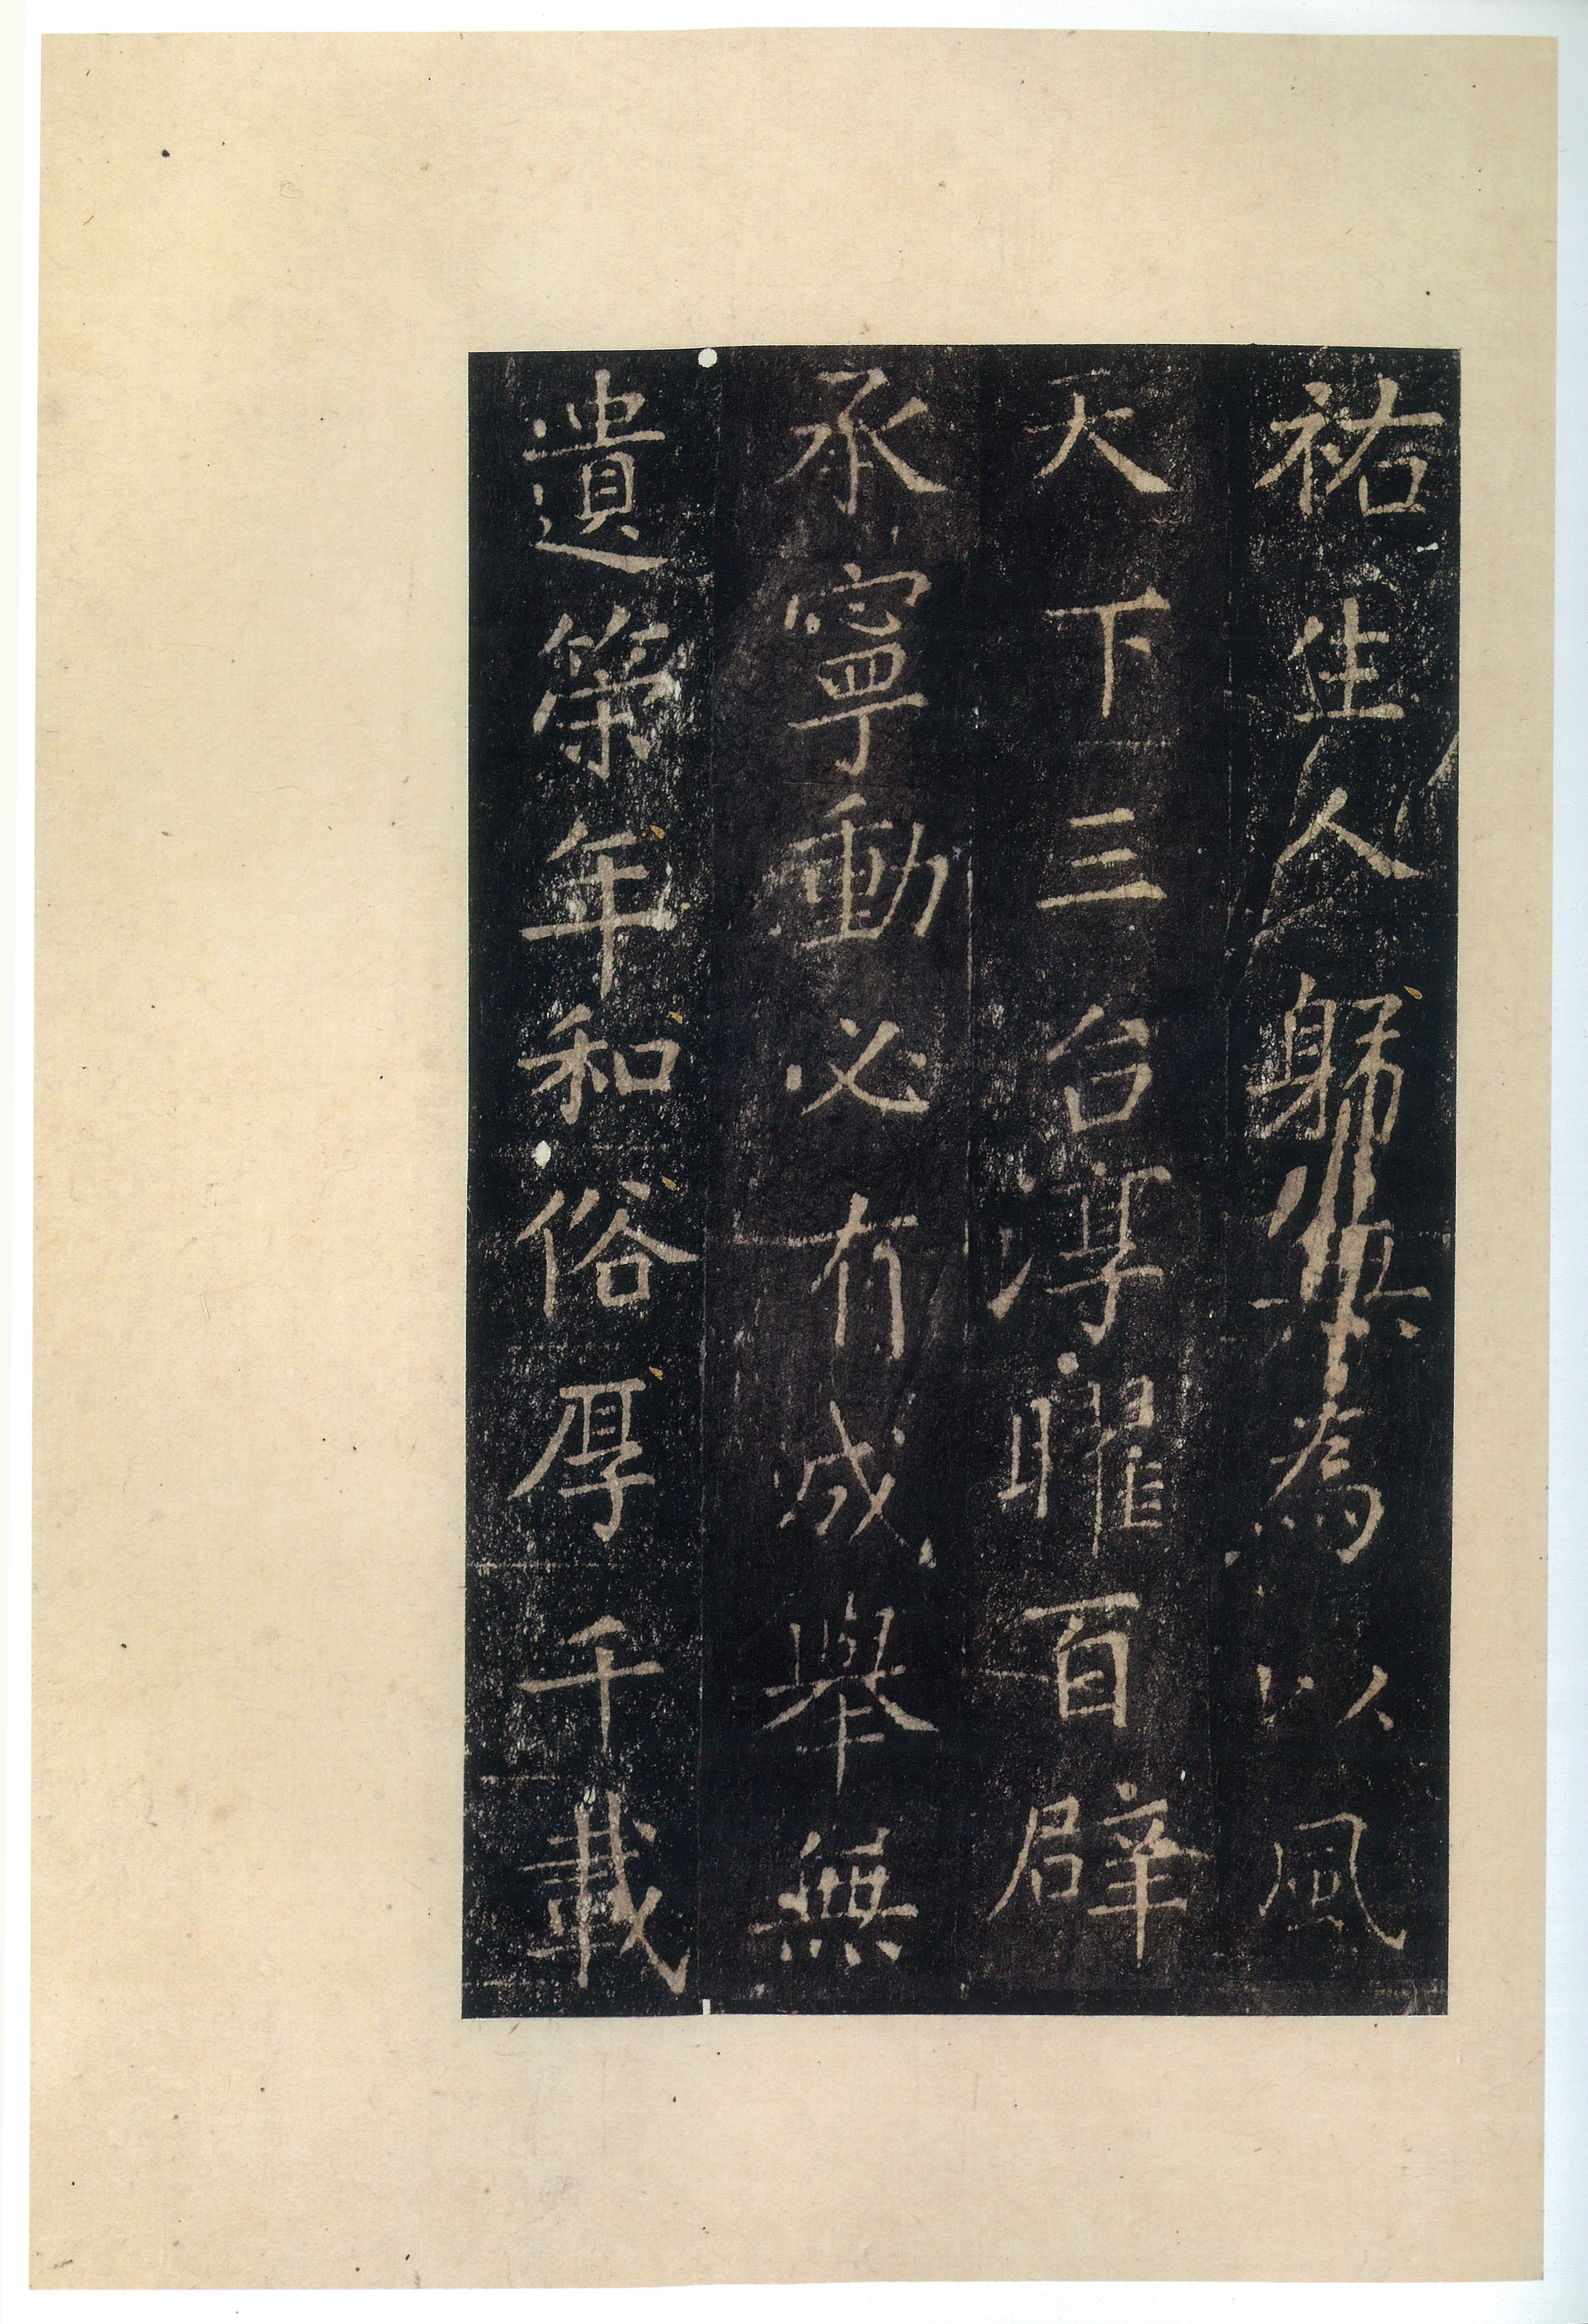 祐生人躬無為以風
天下三台淳曜百辟
承寧動必有成舉無
遺策年和俗厚千載